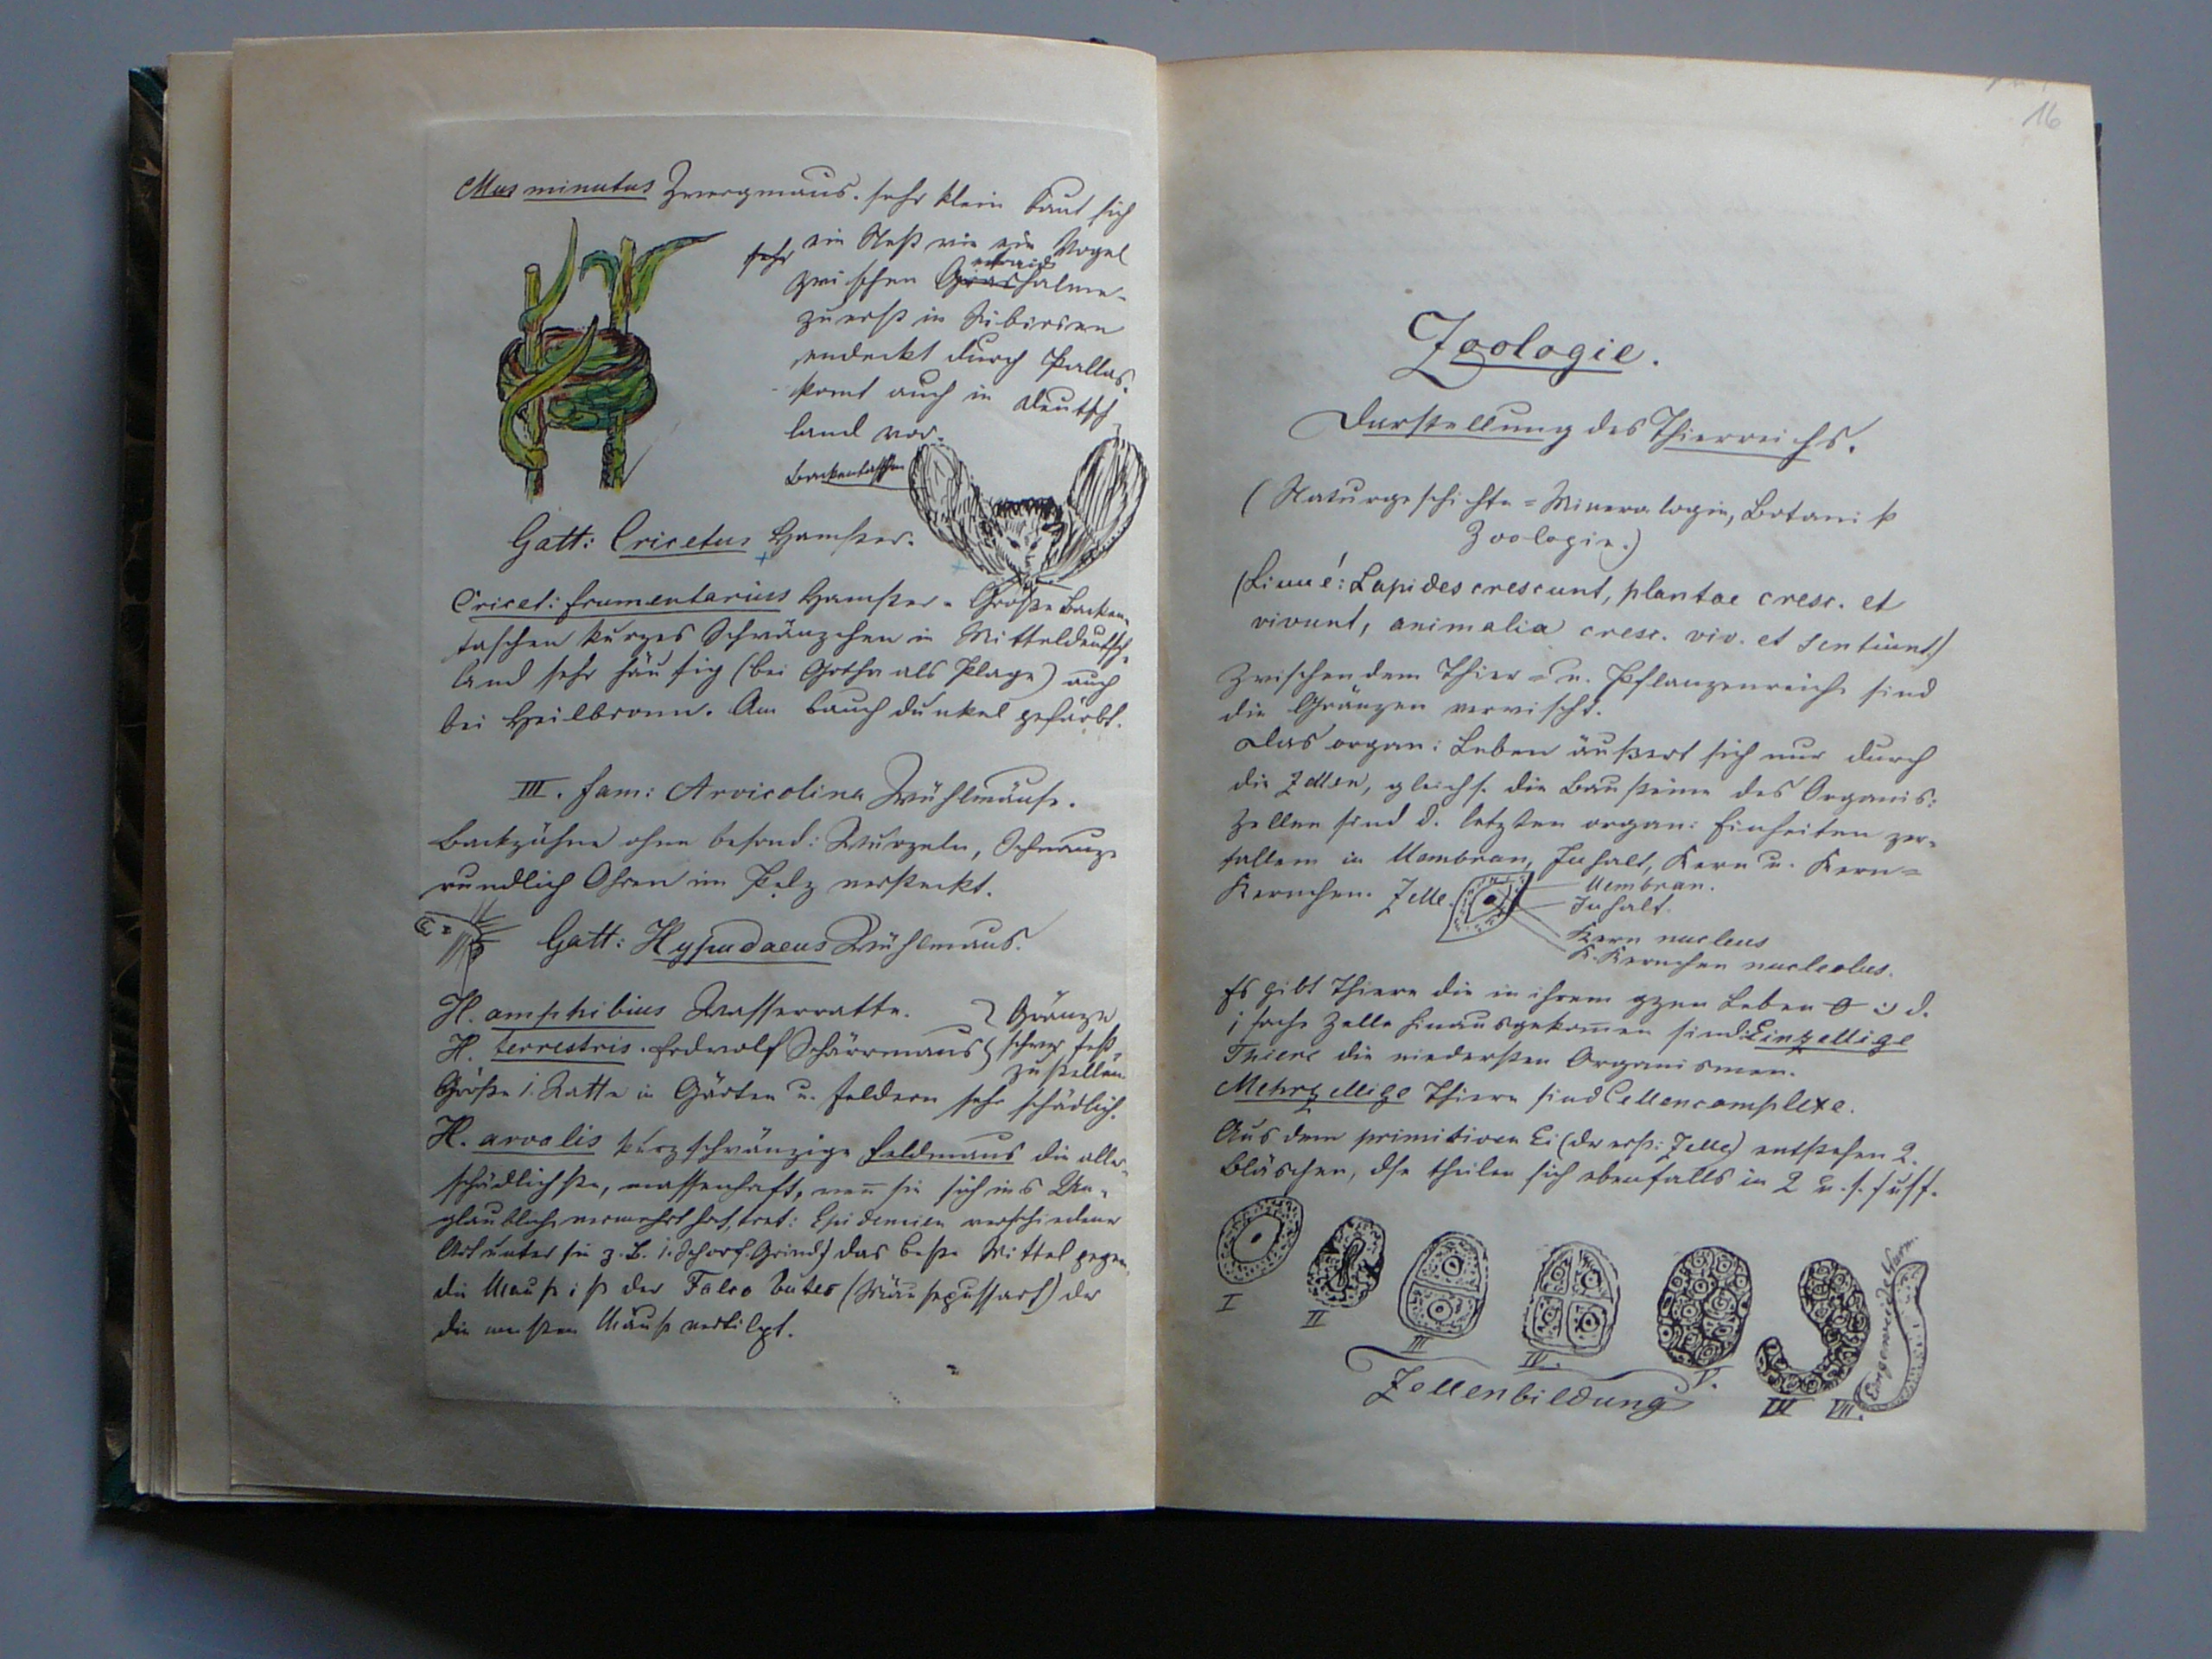 Mus minutus Zwergmaus. sehr klein baut sich
sehr ein Nest wie ein Vogel
etraide
zwischen Grashalme-
zuerst in Sibirien
endeckt durch Pallas.
komt auch in Deutsch
land vor.
Backentaschen
Gatt: Cricetus Hamster.
Cricet: frumentarius Hamster - Große Backen-
taschen kurzes Schwänzchen in Mitteldeutsch-
land sehr häufig (bei Gotha als Plage) auch
bei Heilbronn. Am Bauch dunkel gefärbt.
III. Fam: Arvicolina Wühlmäuse.
Backzähne ohne besond: Wurzeln, Schnauze
rundlich Ohren im Pelz versteckt.
Gatt: Hypudaeus Wühlmaus.
H. amphibius Wasserratte. } Gränze
H. terrestris. Erdwolf Schärrmaus } schwer fest
zu stellen
Größe i. Ratte in Gärten u. Feldern sehr schädlich.
H. arvalis kurzschwänzige Feldmaus die aller-
schädlichste, massenhaft, wen̄ sie sich ins Un-
glaubliche vermehrt hat, tret: Epidemien verschiedener
Art unter sie z. B. i. Schorf (Grind) das beste Mittel gegen
die Maus ist der Falco buteo (Mäusepussart) der
die meisten Mäuse vertilgt.
16
Zoologie.
Darstellung des Thierreichs.
(Naturgeschichte = Mineralogie, Botanik
Zoologie.)
(Linné: Lapides crescunt, plantae cresc. et
vivunt, animalia cresc. viv. et sentiunt.)
Zwischen dem Thier = u. Pflanzenreiche sind
die Gränzen verwischt.
Das organ: Leben äußert sich nur durch
die Zellen, gleichs. die Bausteine des Organis:
Zellen sind d. letzten organ: Einheiten zer-
fallem in Membran, Inhalt, Kern u. Kern =
Kernchen. Zelle.
Membran.
Inhalt.
Kern nucleus
K. Kernchen nucleolus.
Es gibt Thiere die in ihrem gzen Leben d.
i fache Zelle hinausgekom̄en sind: Einzellige
Thiere die niedersten Organismen.
Mehrzellige Thiere sind Cellencomplexe.
Aus dem primitiven Ei (der erst: Zelle) entstehen 2.
Bläschen, dse theilen sich ebenfalls in 2 u. s. f.
I
II
III
IV.
V.
VI
VII.
Eingeweide Wurm.
Zellenbildung